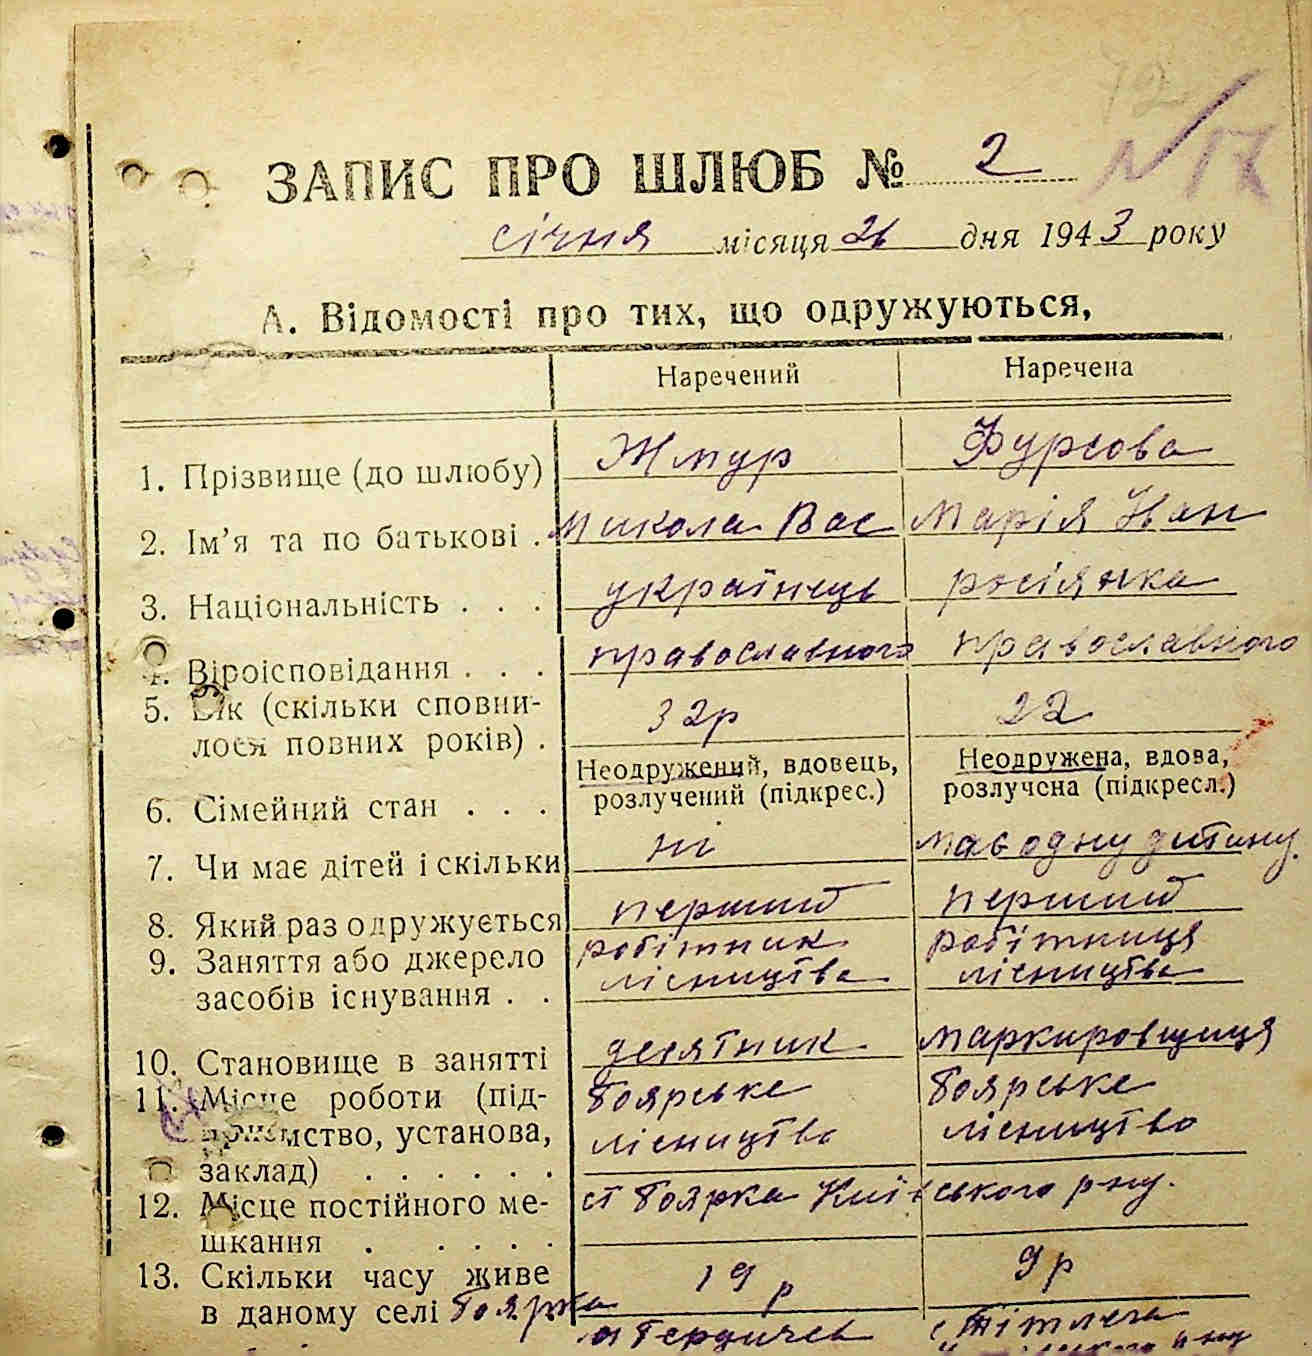 72
N 17
ЗАПИС ПРО ШЛЮБ № 2
січня місяця 26 дня 1943 року
А. Відомості про тих, що одружуються,
Наречений Наречена
1. Прізвище (до шлюбу) Жмур Фурсова
2. Ім'я та по батькові . Микола Вас Марія Іван
3. Національність . . . українець росіянка
4. Віроісповідання . . . православного православного
5. Вік (скільки сповни- 32р 22
лося повних років) .
Неодружений, вдовець, Неодружена, вдова,
6. Сімейний стан . . . розлучений (підкрес.) розлучена (підкресл.)
7. Чи має дітей і скільки ні має одну дитину.
8. Який раз одружується первший первший
9. Заняття або джерело робітник робітниця
засобів існування . . лісництва лісництва
10. Становище в занятті десятник маркировщиця
11. Місце роботи (під- Боярське Боярське
приємство, установа, лісництво лісництво
заклад) . . . . . .
12. Місце постійного ме- ст Боярка Київського р-ну.
шкання . . . . .
13. Скільки часу живе 19 р 9 р
в даному селі Боярка
м Бердичев с